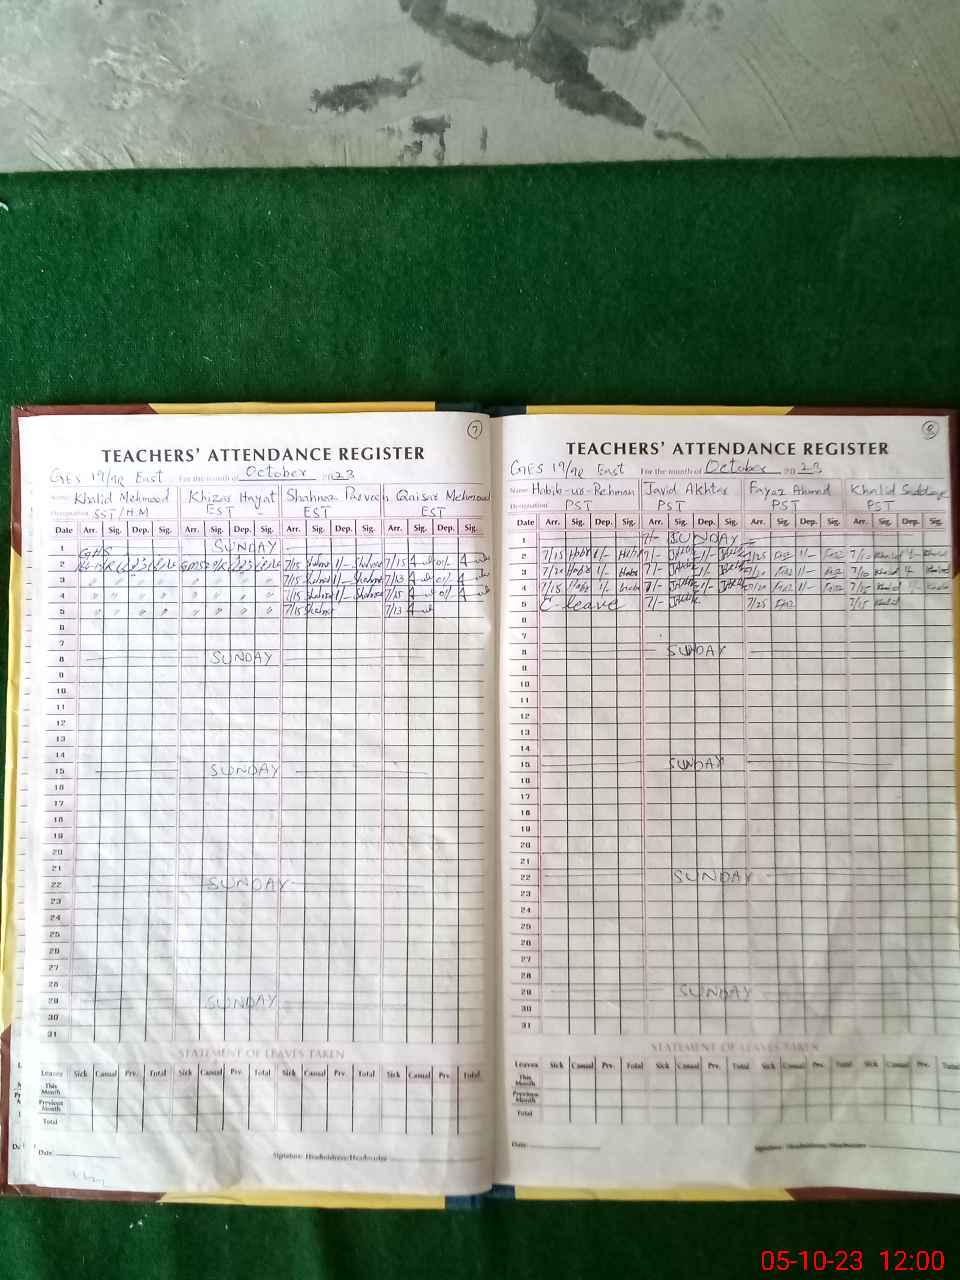 7
TEACHERS' ATTENDANCE REGISTER
GES 19/9R East For the month of October 2023
Name Khalid Mehmood Khizar Hayat Shahnaz Parveen Qaisar Mehmood
Designation SST/H.M EST EST EST
Date Arr. Sig. Dep. Sig. Arr. Sig. Dep. Sig. Arr. Sig. Dep. Sig. Arr. Sig. Dep. Sig.
1 SUNDAY
GHS
2 7/15 1/- 7/15
3 " " " " " " " " 7/15 7/13
4 " " " " " " " " 7/15 1/- 7/15
5 " " " " " " " " 7/15 7/13
6
7
8 SUNDAY
9
10
11
12
13
14
15 SUNDAY
16
17
18
19
20
21
22 SUNDAY
23
24
25
26
27
28
29 SUNDAY
30
31
STATEMENT OF LEAVES TAKEN
Leaves Sick Casual Prv. Total Sick Casual Prv. Total Sick Casual Prv. Total Sick Casual Prv. Total
This Month
Previous Month
Total
Date: Signature: Headmistress/Headmaster
8
TEACHERS' ATTENDANCE REGISTER
GES 19/9R East For the month of October 2023
Name Habib-ur-Rehman Javid Akhter Fayaz Ahmed Khalid
Designation PST PST PST PST
Date Arr. Sig. Dep. Sig. Arr. Sig. Dep. Sig. Arr. Sig. Dep. Sig. Arr. Sig. Dep. Sig.
1 7/- SUNDAY
2 7/15 Habib 1/- Habib 7/- 1/- 7/25 1/- 7/10 Khalid
3 7/20 Habib 1/- Habib 7/- 1/- 7/20 1/- 7/10 Khalid
4 7/15 Habib 1/- Habib 7/- 1/- 7/20 1/- 7/15 Khalid
5 C-leave 7/- 7/25 7/15 Khalid
6
7
8 SUNDAY
9
10
11
12
13
14
15 SUNDAY
16
17
18
19
20
21
22 SUNDAY
23
24
25
26
27
28
29 SUNDAY
30
31
STATEMENT OF LEAVES TAKEN
Leaves Sick Casual Prv. Total Sick Casual Prv. Total Sick Casual Prv. Total Sick Casual Prv. Total
This Month
Previous Month
Total
Date: Signature: Headmistress/Headmaster
05-10-23 12:00